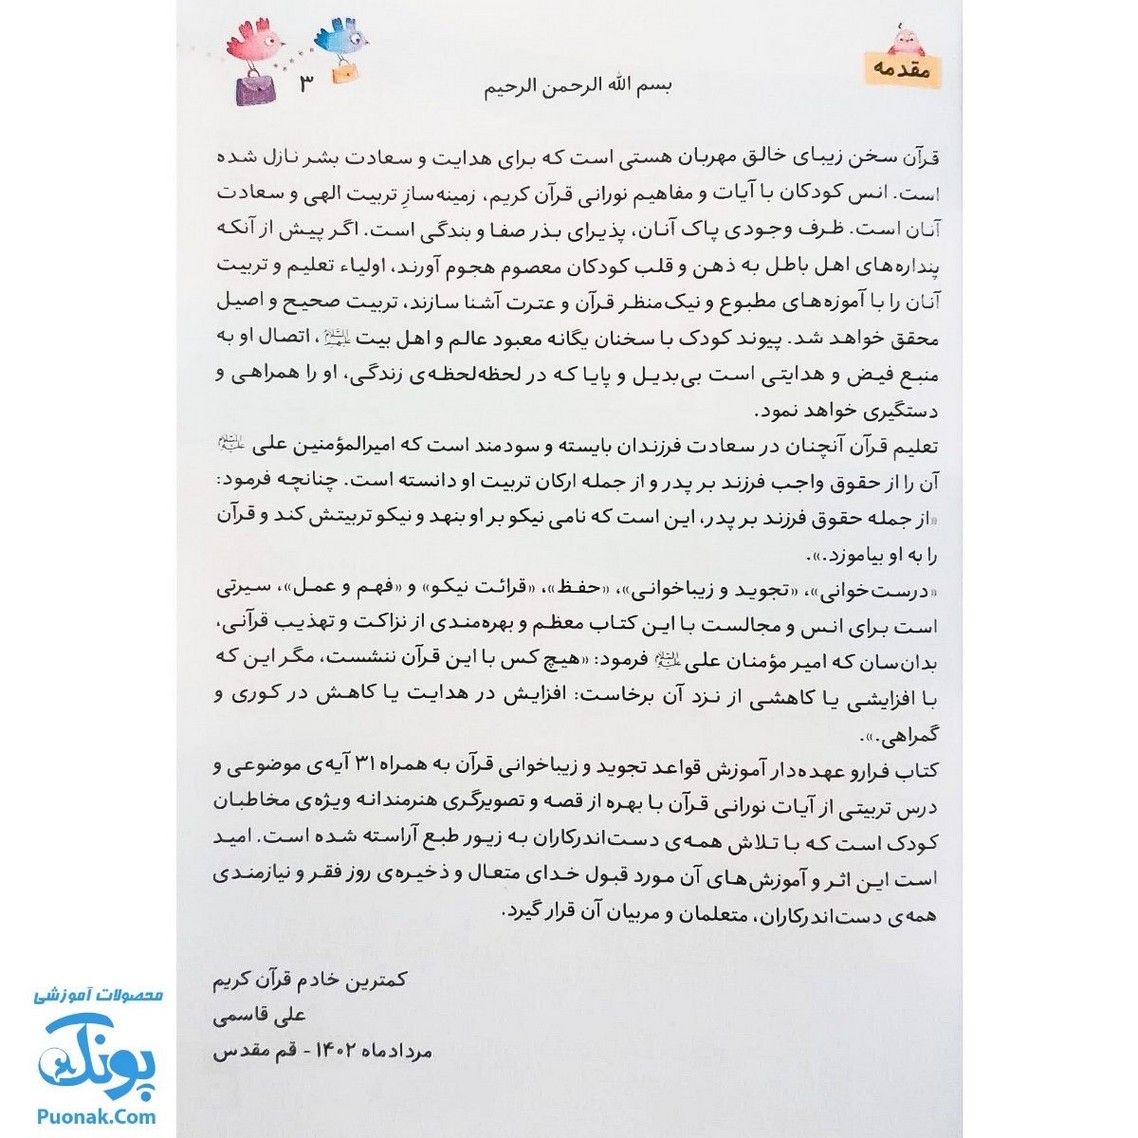 مقدمه
۳
بسم الله الرحمن الرحیم
قرآن سخن زیبای خالق مهربان هستی است که برای هدایت و سعادت بشر نازل شده
است. انس کودکان با آیات و مفاهیم نورانی قرآن کریم، زمینه‌سازِ تربیت الهی و سعادت
آنان است. ظرف وجودی پاک آنان، پذیرای بذر صفا و بندگی است. اگر پیش از آنکه
پنداره‌های اهل باطل به ذهن و قلب کودکان معصوم هجوم آورند، اولیاء تعلیم و تربیت
آنان را با آموزه‌های مطبوع و نیک‌منظر قرآن و عترت آشنا سازند، تربیت صحیح و اصیل
محقق خواهد شد. پیوند کودک با سخنان یگانه معبود عالم و اهل بیت علیهم السلام، اتصال او به
منبع فیض و هدایتی است بی‌بدیل و پایا که در لحظه‌لحظه‌ی زندگی، او را همراهی و
دستگیری خواهد نمود.
تعلیم قرآن آنچنان در سعادت فرزندان بایسته و سودمند است که امیرالمؤمنین علی علیه السلام
آن را از حقوق واجب فرزند بر پدر و از جمله ارکان تربیت او دانسته است. چنانچه فرمود:
«از جمله حقوق فرزند بر پدر، این است که نامی نیکو بر او بنهد و نیکو تربیتش کند و قرآن
را به او بیاموزد.».
«درست‌خوانی»، «تجوید و زیباخوانی»، «حفظ»، «قرائت نیکو» و «فهم و عمل»، سیرتی
است برای انس و مجالست با این کتاب معظم و بهره‌مندی از نزاکت و تهذیب قرآنی،
بدان‌سان که امیر مؤمنان علی علیه السلام فرمود: «هیچ کس با این قرآن ننشست، مگر این که
با افزایشی یا کاهشی از نزد آن برخاست: افزایش در هدایت یا کاهش در کوری و
گمراهی.».
کتاب فرارو عهده‌دار آموزش قواعد تجوید و زیباخوانی قرآن به همراه ۳۱ آیه‌ی موضوعی و
درس تربیتی از آیات نورانی قرآن با بهره از قصه و تصویرگری هنرمندانه ویژه‌ی مخاطبان
کودک است که با تلاش همه‌ی دست‌اندرکاران به زیور طبع آراسته شده است. امید
است این اثر و آموزش‌های آن مورد قبول خدای متعال و ذخیره‌ی روز فقر و نیازمندی
همه‌ی دست‌اندرکاران، متعلمان و مربیان آن قرار گیرد.
کمترین خادم قرآن کریم
علی قاسمی
مردادماه ۱۴۰۲ - قم مقدس
محصولات آموزشی
پونک
Puonak.Com